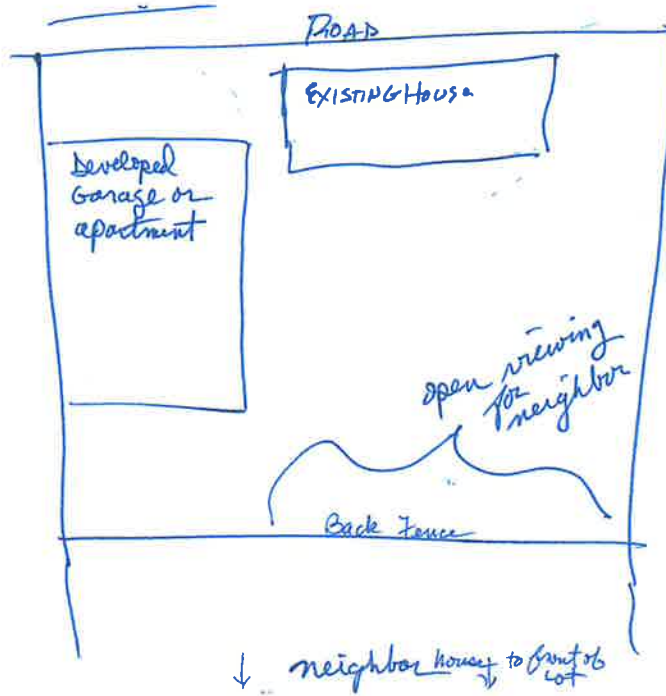 ROAD
EXISTING House
Developed
Garage or
apartment
open viewing
for
neighbor
Back Fence
neighbor house to front of
lot